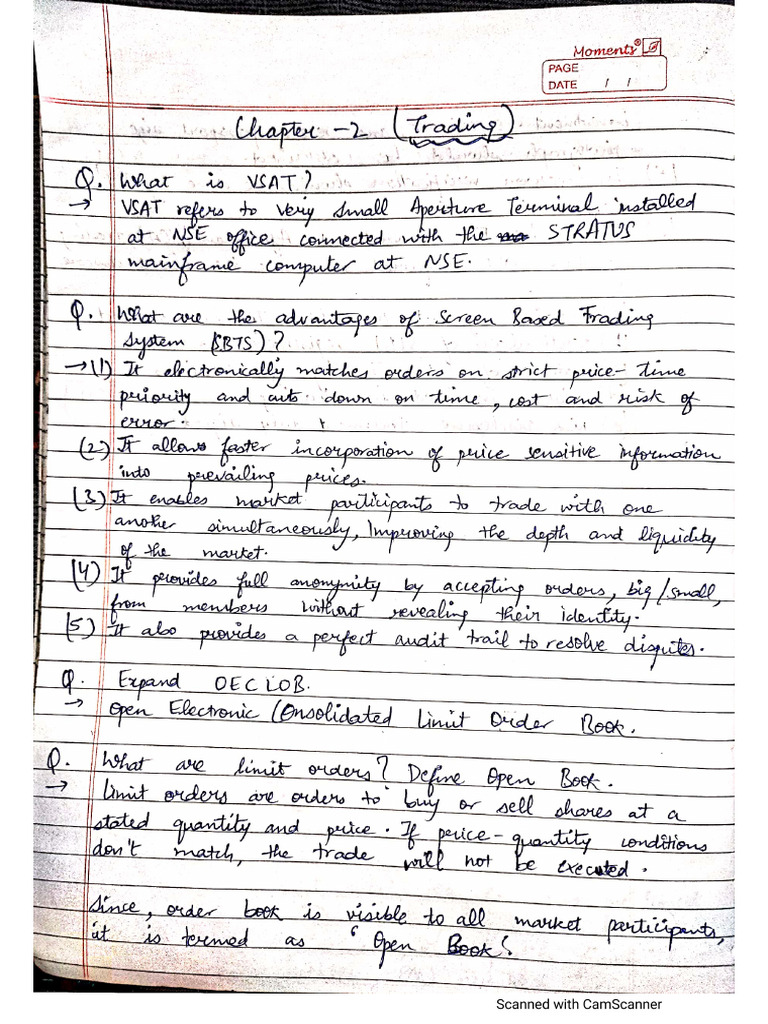 Moments®
PAGE
DATE / /
Chapter - 2 (Trading)
Q. What is VSAT?
→ VSAT refers to Very Small Aperture Terminal installed
at NSE office connected with the STRATUS
mainframe computer at NSE.
Q. What are the advantages of Screen Based Trading
System (SBTS)?
→ (1) It electronically matches orders on strict price-time
priority and cuts down on time, cost and risk of
error.
(2) It allows faster incorporation of price sensitive information
into prevailing prices.
(3) It enables market participants to trade with one
another simultaneously, Improving the depth and liquidity
of the market.
(4) It provides full anonymity by accepting orders, big/small,
from members without revealing their identity.
(5) It also provides a perfect audit trail to resolve disputes.
Q. Expand OECLOB.
→ Open Electronic Consolidated Limit Order Book.
Q. What are limit orders? Define Open Book.
→ Limit orders are orders to buy or sell shares at a
stated quantity and price. If price-quantity conditions
don't match, the trade will not be executed.
Since, order book is visible to all market participants,
it is termed as 'Open Book'.
Scanned with CamScanner